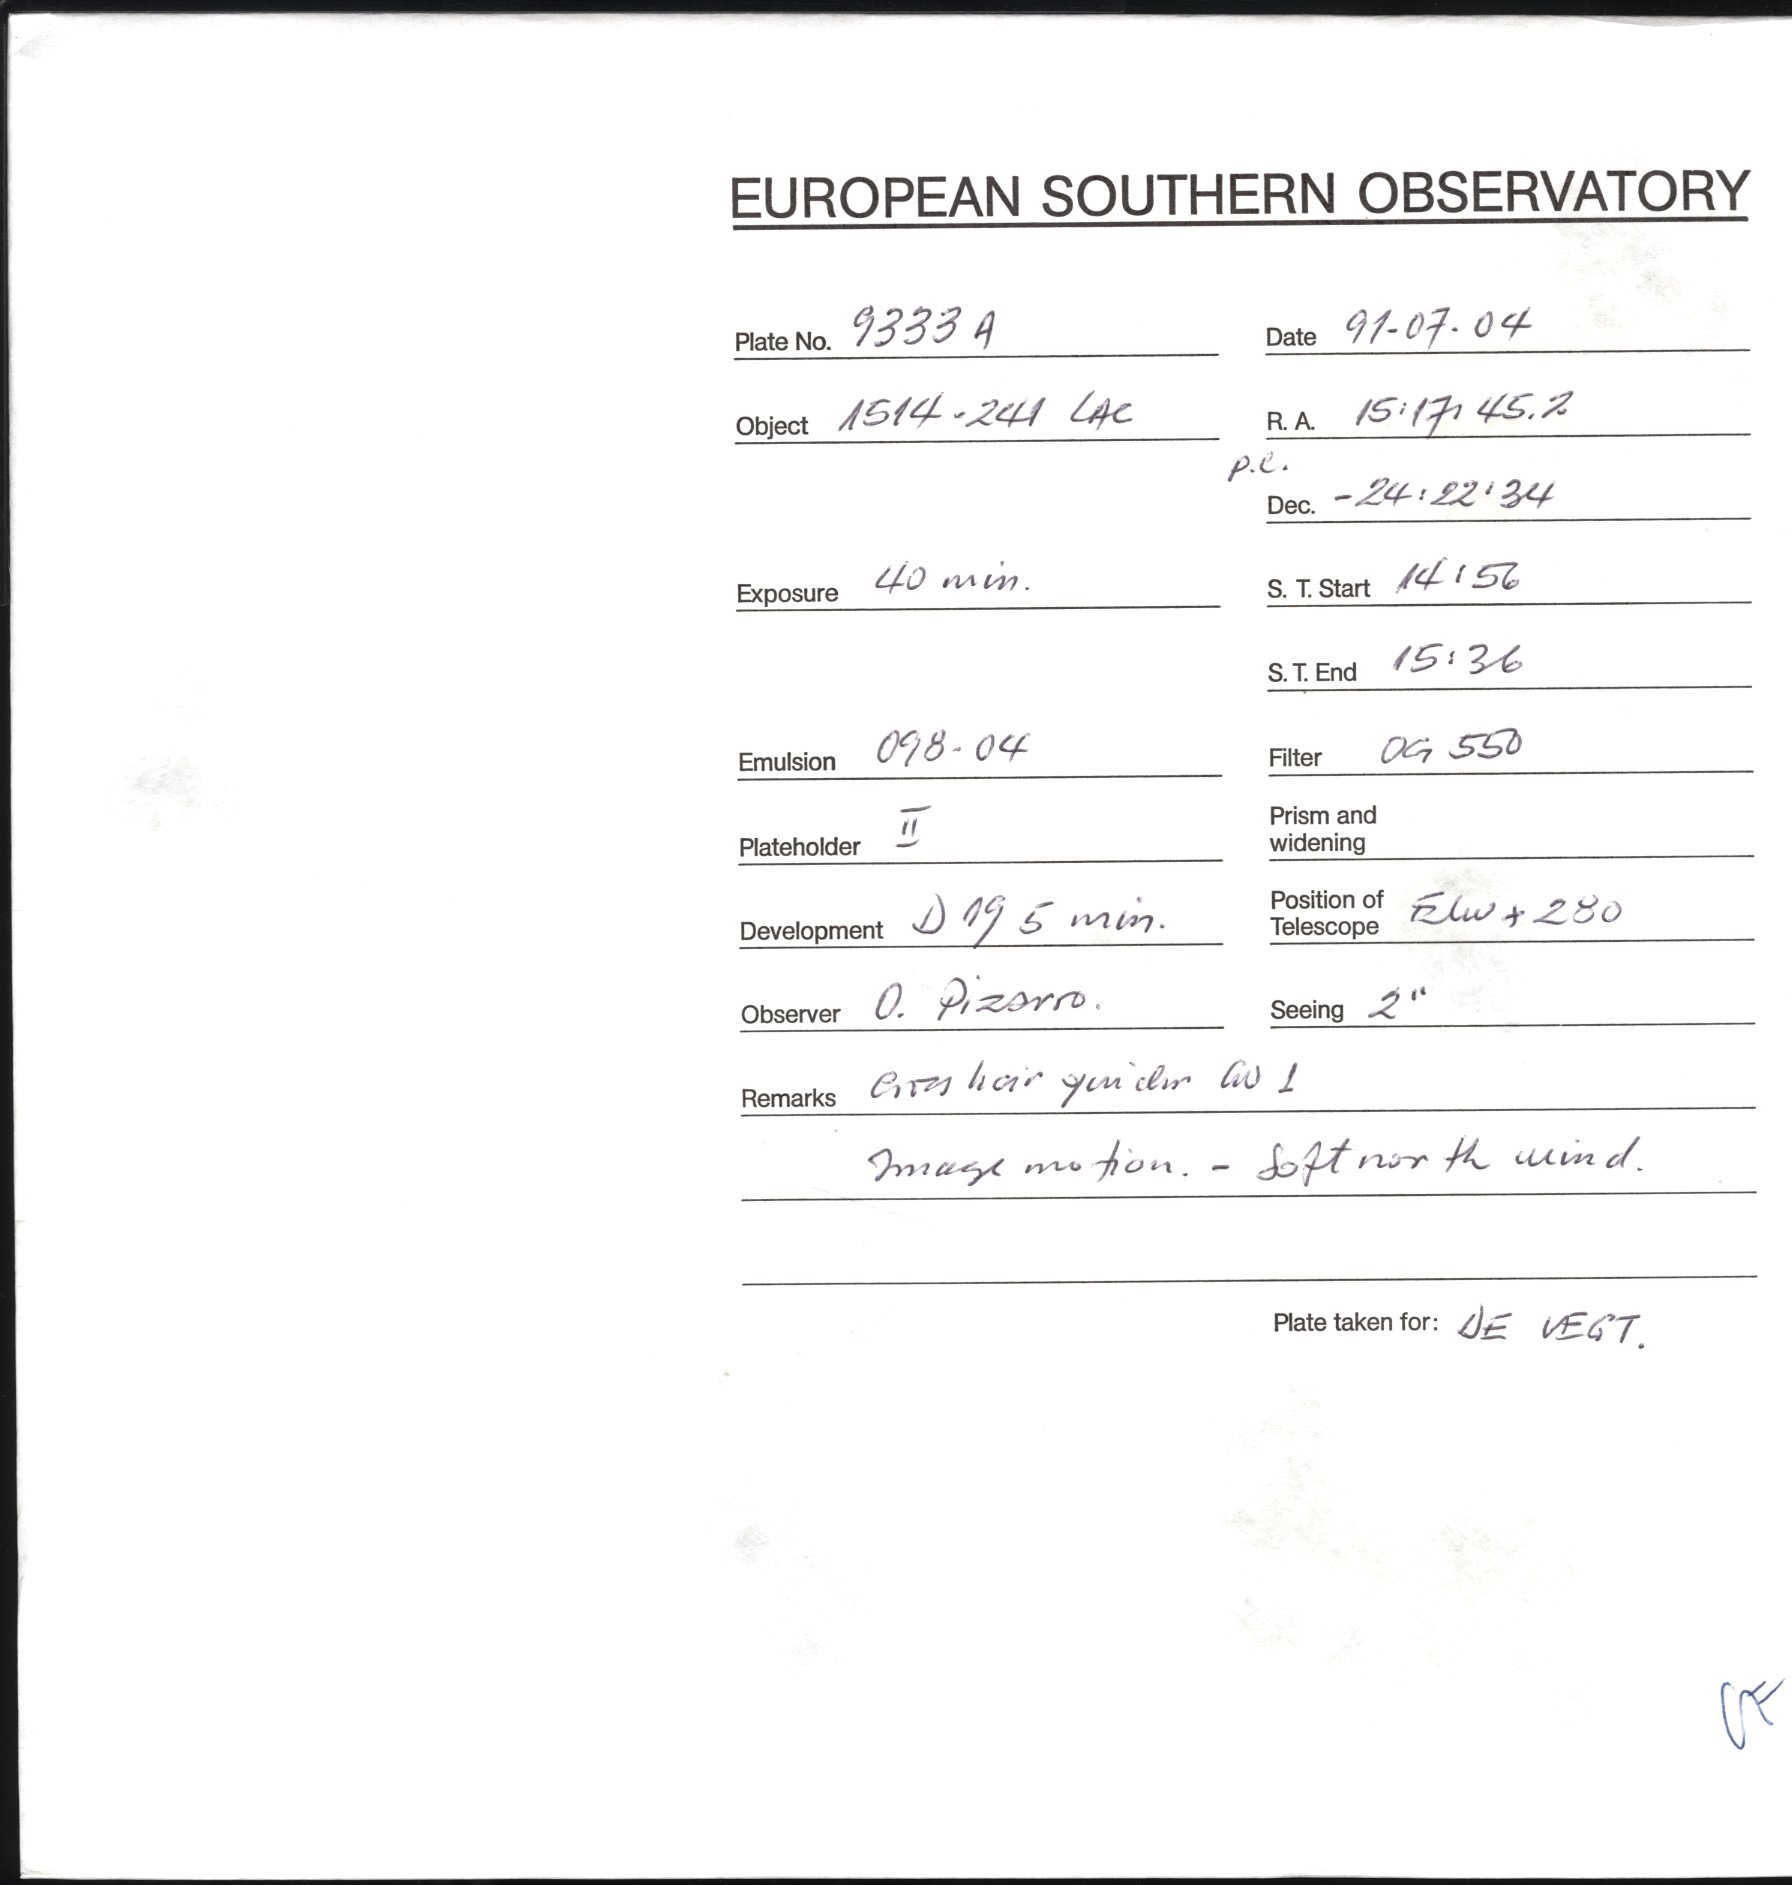 EUROPEAN SOUTHERN OBSERVATORY
Plate No. 9333 A Date 91-07-04
Object 1514-241 LAC R. A. 15:17:45.2
p.c.
Dec. -24:22:34
Exposure 40 min. S. T. Start 14:56
S. T. End 15:36
Emulsion 098-04 Filter OG 550
Plateholder II Prism and
widening
Development D 19 5 min. Position of
Telescope + 280
Observer O. Pizarro. Seeing 2"
Remarks Cross hair guider 1
Image motion. - Soft north wind.
Plate taken for: DE VEGT.